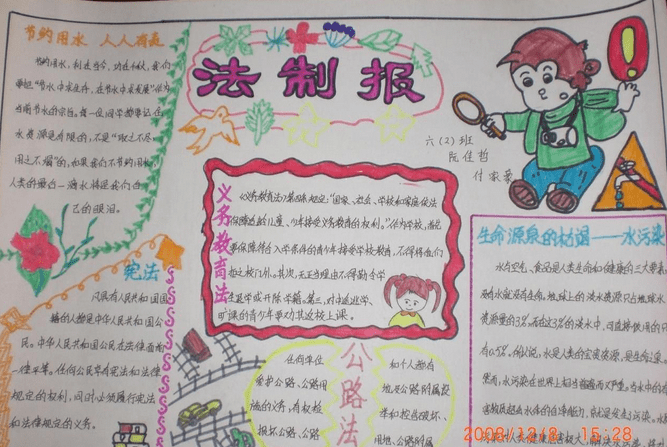 节约用水 人人有责
节约用水，利在当今，功在千秋，我们
要把“节水中求生存，在节水中求发展”作为
当前节水的宗旨。每一位同学都要记住
水资源是有限的，不是“取之不尽
用之不竭”的，如果我们不节约用水，
人类的最后一滴水将是我们自
己的眼泪。
法制报
六(2)班
阮佳哲
付家豪
宪法
凡具有人民共和国国
籍的人都是中华人民共和国公
民。中华人民共和国公民在法律面前
一律平等。任何公民享有宪法和法律
规定的权利，同时必须履行宪法
和法律规定的义务。
义务教育法
《义务教育法》第四条规定：“国家、社会、学校和家庭依法
保障适龄儿童、少年接受义务教育的权利。”作为学校，首先
要保障符合入学条件的青少年接受学校教育，不得将他们
拒之校门外。其次，无正当理由不得勒令学
生退学或开除学籍。第三，对中途退学、
旷课的青少年要劝其返校上课。
公路法
任何单位
爱护公路、公路用
施的义务，有权检
损坏公路、公路
和个人都有
地及公路附属设
举和控告破坏、
用地、公路附属
生命源泉的枯竭——水污染
水与空气、食品是人类生命和健康的三大要素，
没有水就没有生命。地球上的淡水资源只占地球水
资源量的3%，而在这3%的淡水中，可直接饮用的只
有0.5%。所以说，水是人类的宝贵资源，是生命之泉。
然而，水污染在世界上相当普遍而又严重。当水中的
害物质超出水体的自净能力，
2008/12/8 15:28